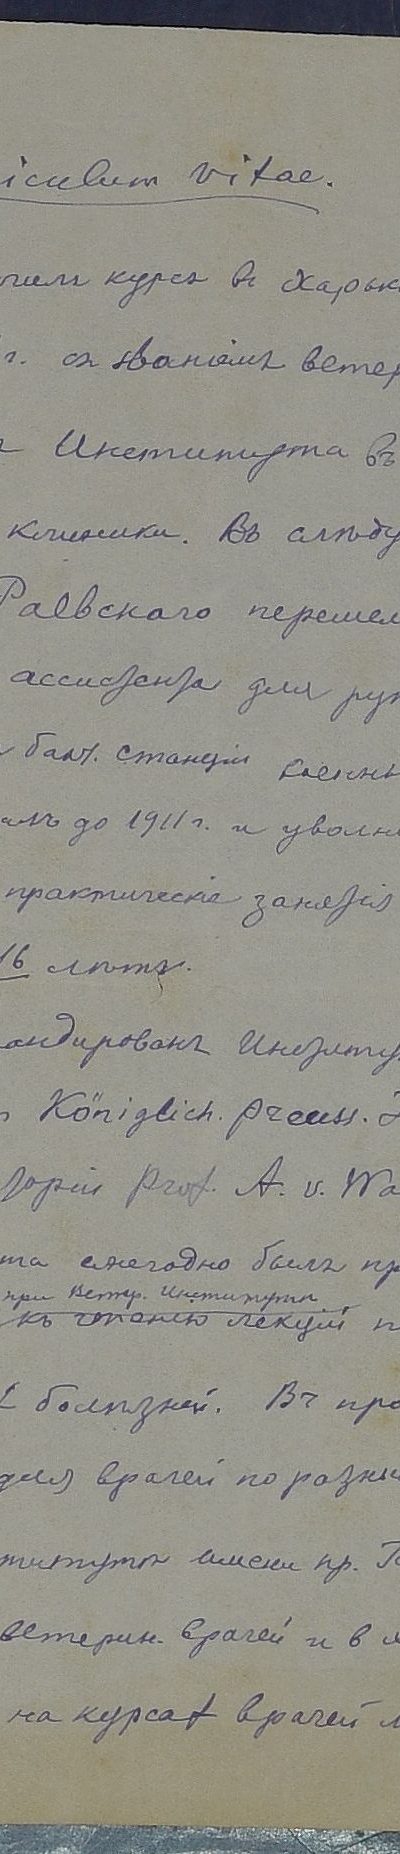 iculum vitae.
чилъ курсъ въ Харьк
г. съ званіемъ ветер
Института въ
клиники. Въ слѣду
Раевскаго перешел
ассистента для ру
бакт. станціи военн
алъ до 1911 г. и уволи
практическіе занятія
16 лѣтъ.
андированъ Институ
Königlich. Preuss. I
торіи Prof. A. v. Wa
та ежегодно былъ пр
при Ветер. Институтѣ
къ чтенію лекцій п
болѣзней. Въ про
для врачей по разны
титутѣ имени пр.
ветерин. врачей и в
на курсах врачей